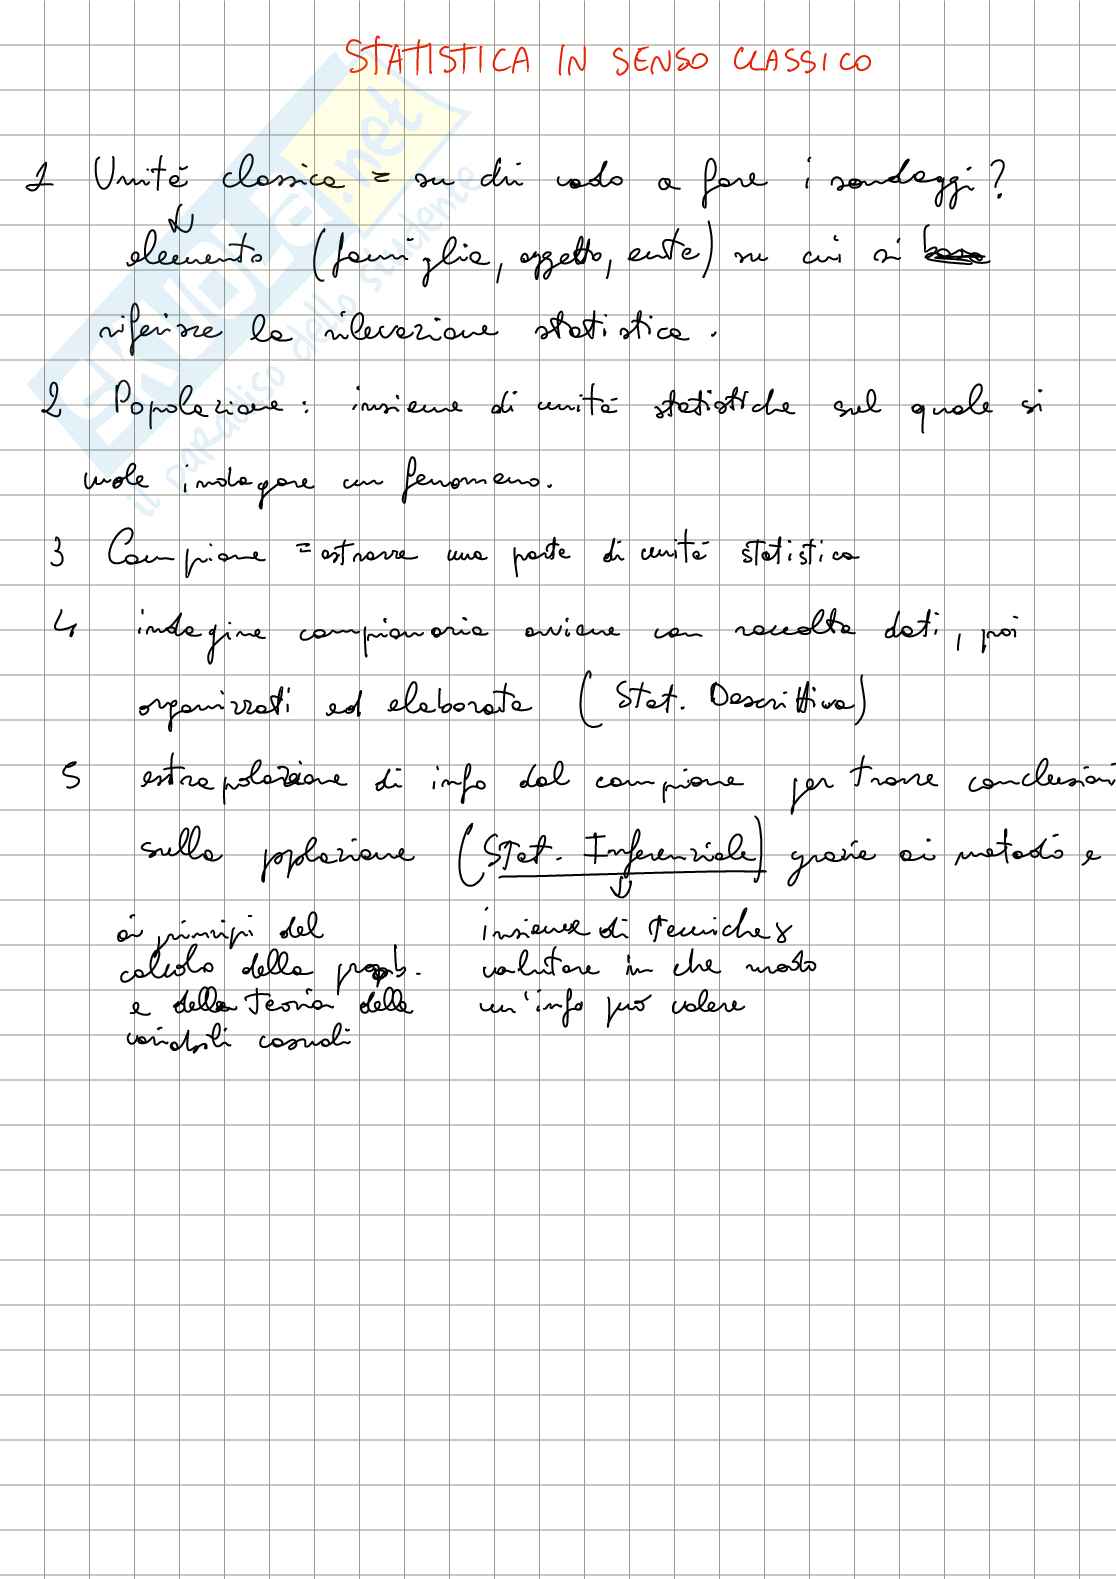 STATISTICA IN SENSO CLASSICO
1 Unità classica = su chi vado a fare i sondaggi?
elemento (famiglia, oggetto, ente) su cui si
riferisce la rilevazione statistica.
2 Popolazione: insieme di unità statistiche sul quale si
vuole indagare un fenomeno.
3 Campione = estrarre una parte di unità statistica
4 indagine campionaria avviene con raccolta dati, poi
organizzati ed elaborate (Stat. Descrittiva)
5 estrapolazione di info dal campione per trarre conclusioni
sulla popolazione (Stat. Inferenziale) grazie ai metodo e
ai principi del
calcolo della prob.
e della teoria delle
variabili casuali
insieme di tecniche x
valutare in che modo
un'info può valere
SKUOLA.net
il paradiso dello studente